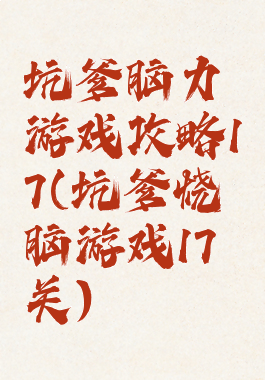 坑爹脑力
游戏攻略1
7(坑爹烧
脑游戏17
关)